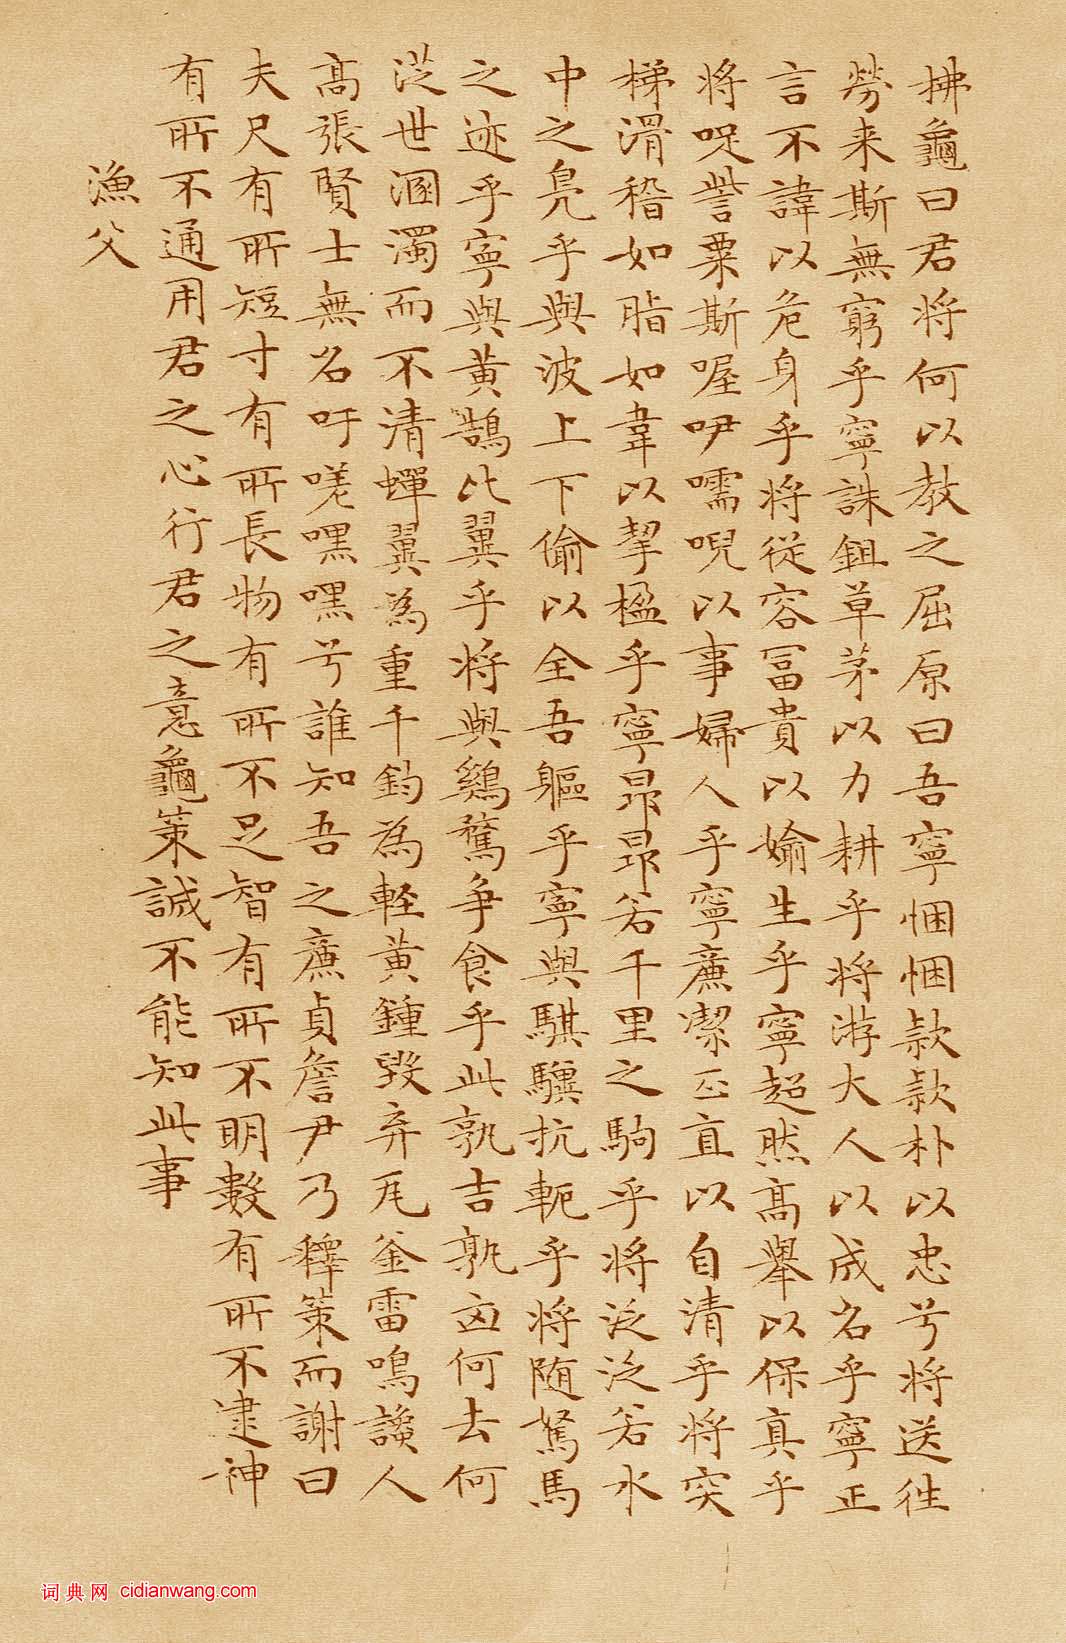 拂龜曰君將何以教之屈原曰吾寧悃悃款款朴以忠兮將送往
勞来斯無窮乎寧誅鉏草茅以力耕乎將游大人以成名乎寧正
言不諱以危身乎將從容冨貴以媮生乎寧超然高舉以保真乎
將哫訾粟斯喔咿嚅唲以事婦人乎寧廉潔正直以自清乎將突
梯滑稽如脂如韋以挈楹乎寧昂昂若千里之駒乎將泛泛若水
中之鳧乎與波上下偷以全吾軀乎寧與騏驥抗軛乎將随駑馬
之迹乎寧與黄鵠比翼乎將與鷄鶩爭食乎此孰吉孰凶何去何
從世溷濁而不清蟬翼為重千鈞為軽黄鍾毀弃瓦釜雷鳴讒人
高張賢士無名吁嗟嘿嘿兮誰知吾之廉貞詹尹乃釋策而謝曰
夫尺有所短寸有所長物有所不足智有所不明數有所不逮神
有所不通用君之心行君之意龜策誠不能知此事
漁父
词典网 cidianwang.com